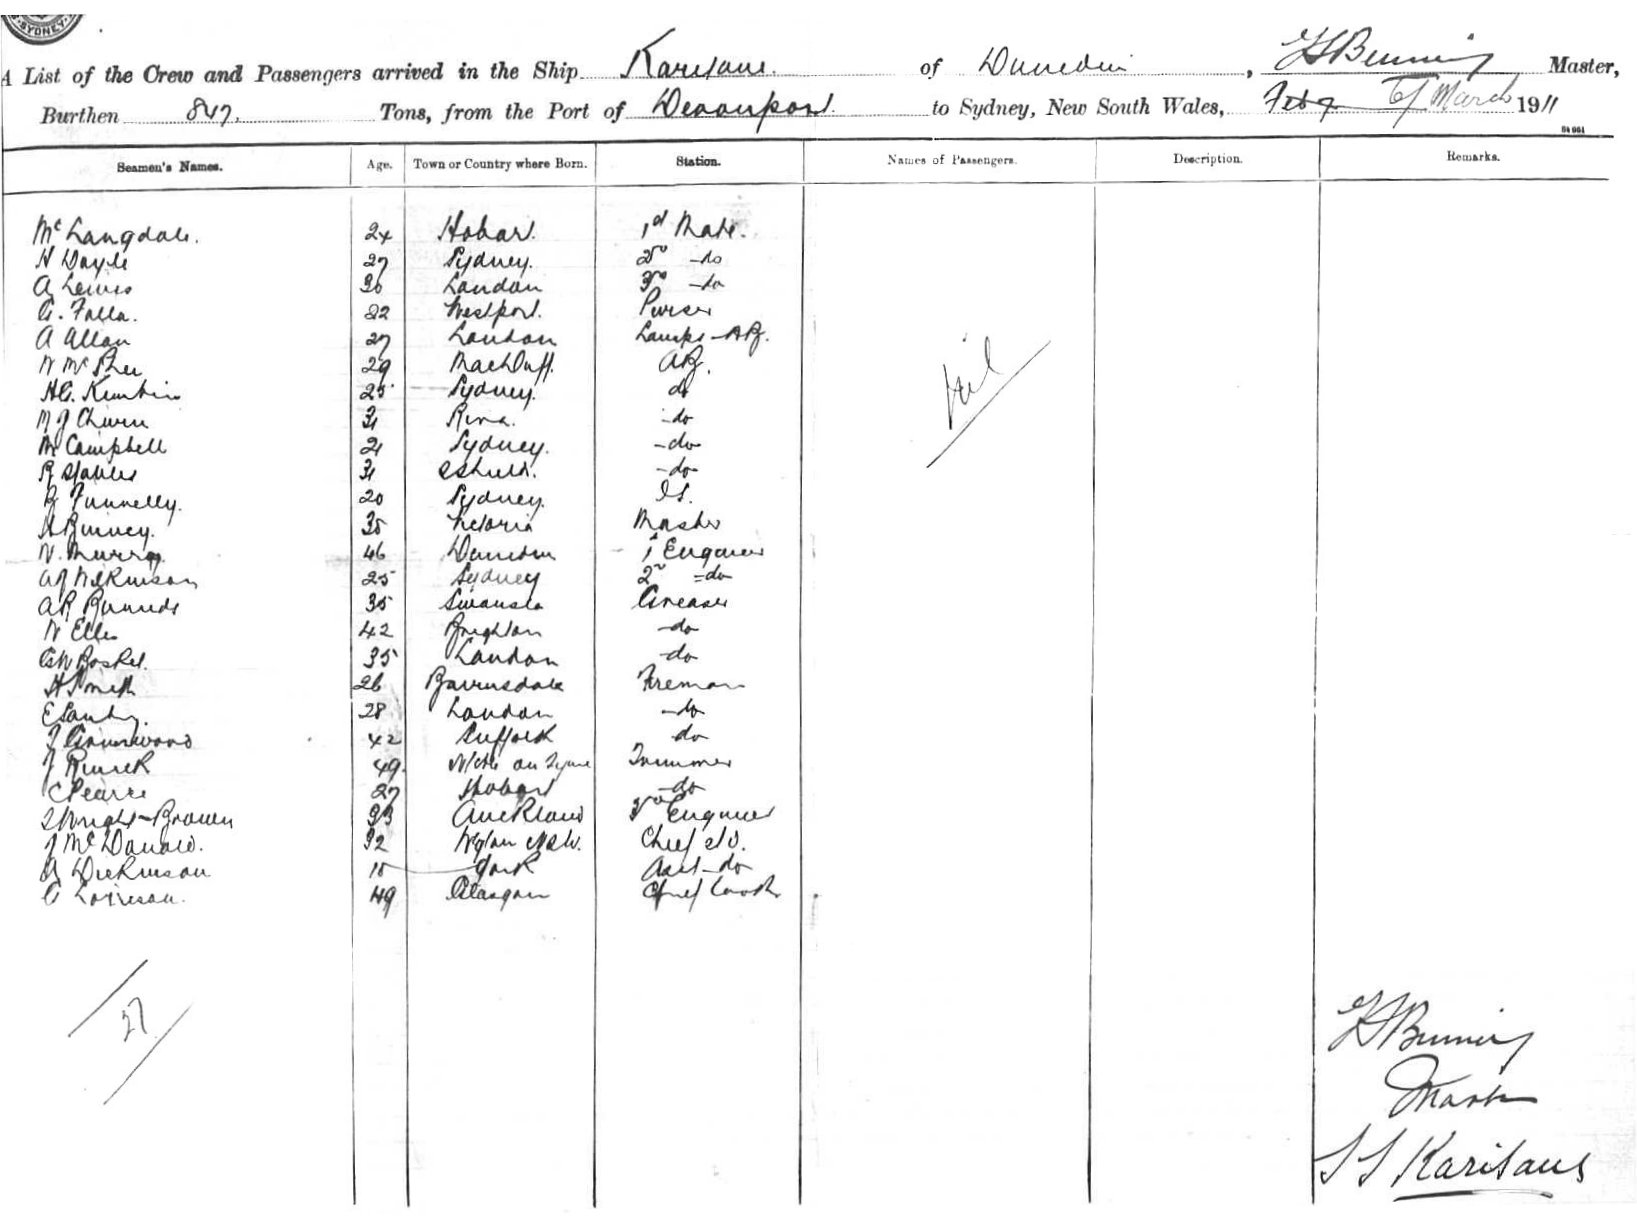 SYDNEY
A List of the Crew and Passengers arrived in the Ship Karitane of Dunedin, Master,
Burthen 847. Tons, from the Port of Devonport to Sydney, New South Wales, Feby 6/ March 1911
Seamen's Names. Age. Town or Country where Born. Station. Names of Passengers. Description. Remarks.
Mc Langdale. 24 Hobart. 1st Mate.
H Doyle 27 Sydney. 2nd -do
A Lewis 30 London 3rd -do
G. Falla. 22 Westport. Purser
A Allan 27 London Lamps - AB.
W McPhee 29 MacDuff. AB.
25 Sydney. do
31 -do
M Campbell 21 Sydney. -do
R 31 S Shields. -do
R Funnelly. 20 Sydney. OS.
35 Victoria Master
W. Murray. 46 Dunedin 1st Engineer
A J Wilkinson 25 Sydney 2nd =do
A R 35 Swansea Greaser
W Elles 42 Brighton -do
35 London -do
H Smith 26 Bairnsdale Fireman
E 28 London -do
J Greenwood 42 Suffolk do
J 49. N/Cle on Tyne Trimmer
C Pearce 27 Hobart -do
Wright-Brown 33 Auckland 3rd Engineer
J McDonald. 32 NSW. Chief Std.
A Dickinson York Asst do
49 Glasgow Chief Cook
Nil
27
Master
SS Karitane